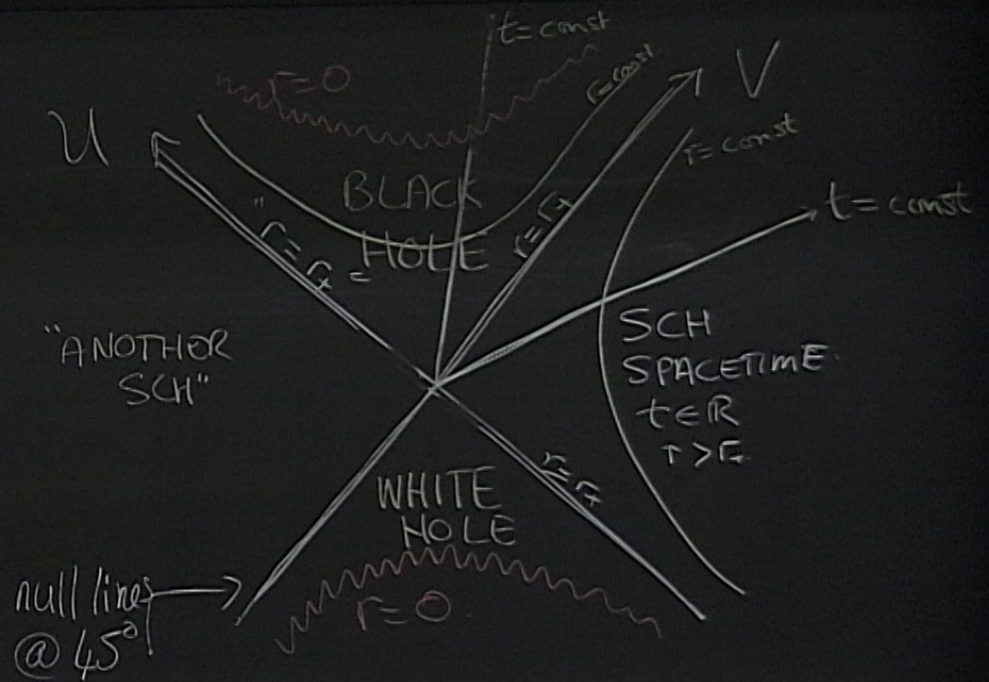 t=const
r=0
r=const
V
U
r=const
BLACK
HOLE
"r=r₊"
r=r₊
t=const
"ANOTHER
SCH"
SCH
SPACETIME.
t∈ℝ
r>r₊
r=r₊
WHITE
HOLE
null lines
@ 45°
r=0